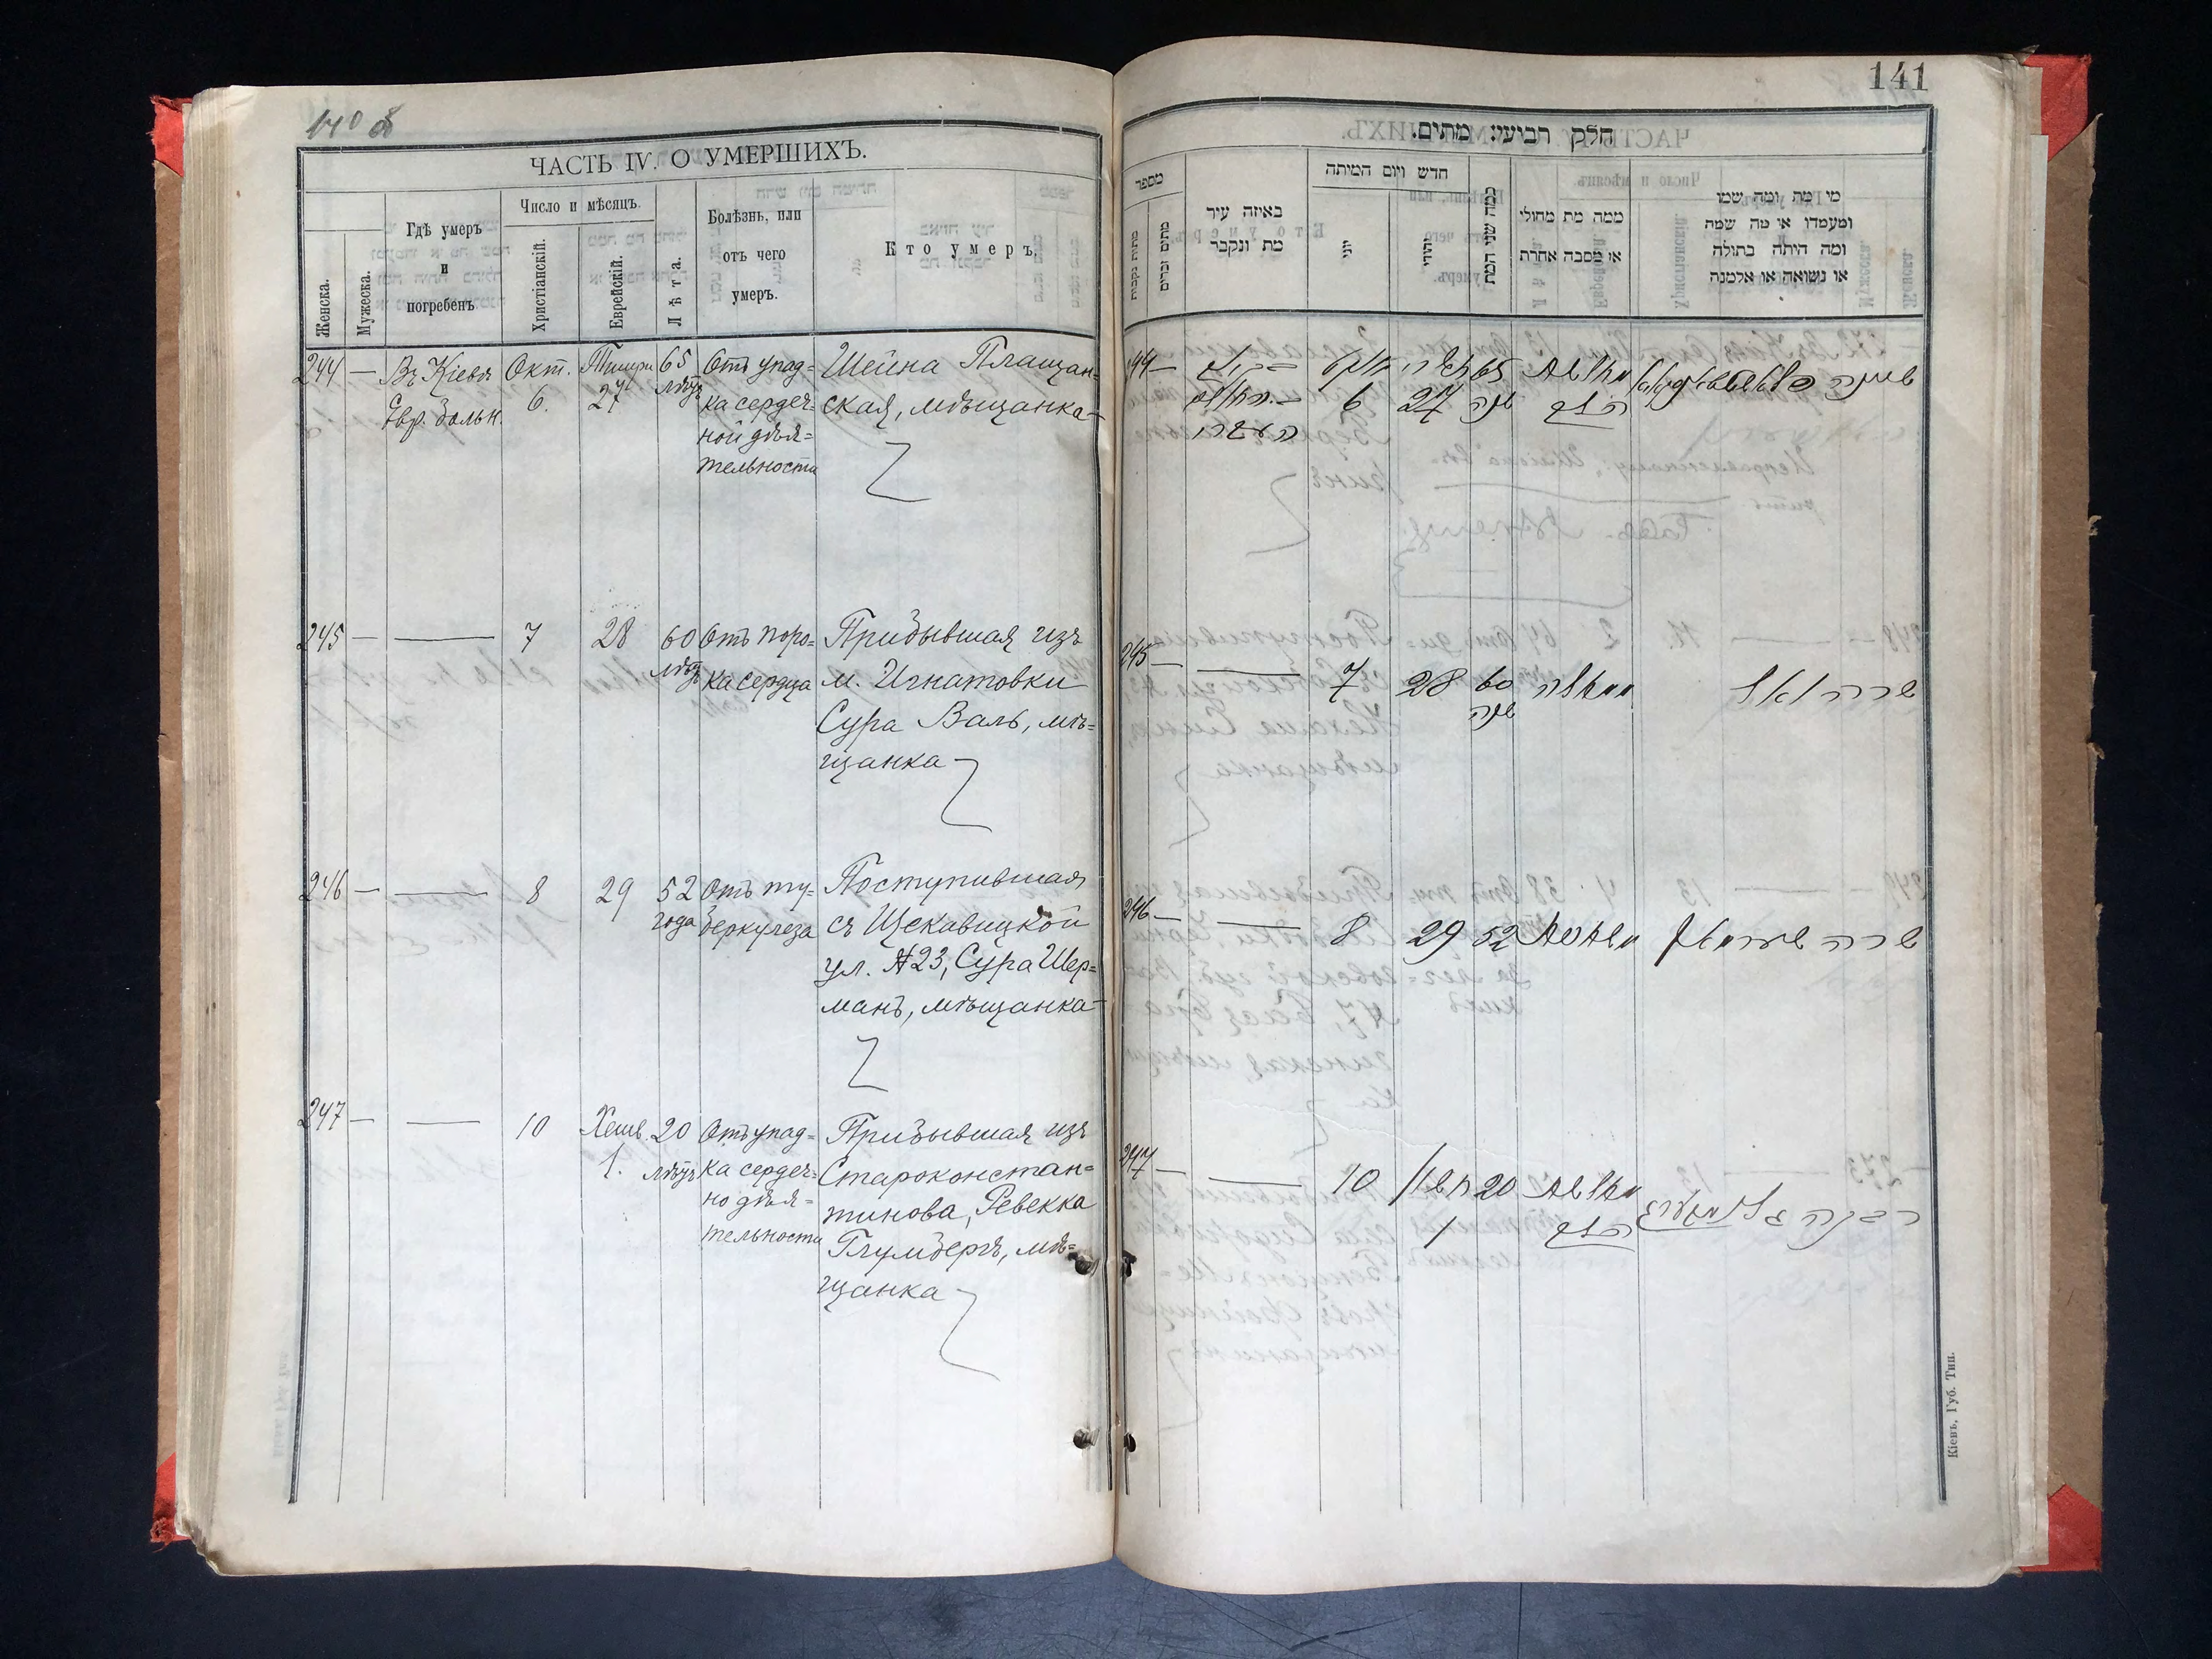 140 об
ЧАСТЬ IV. О УМЕРШИХЪ.
Женска.
Мужеска.
Гдѣ умеръ
и
погребенъ.
Число и мѣсяцъ.
Христіанскій.
Еврейскій.
Лѣта.
Болѣзнь, или
отъ чего
умеръ.
Кто умеръ.
244 —
Въ Кіевѣ
Евр. больн.
Окт.
6.
Тишри
27
65
лѣтъ
Отъ упад=
ка сердеч=
ной дѣя=
тельности
Шейна Плащан=
ская, мѣщанка—
245 — —
7
28
60
лѣтъ
Отъ поро=
ка сердца
Прибывшая изъ
м. Игнатовки
Сура Валь, мѣ=
щанка
246 — —
8
29
52
года
Отъ ту=
беркулеза
Поступившая
съ Щекавицкой
ул. №23, Сура Шер=
манъ, мѣщанка—
247 — —
10
Хешв.
1.
20
лѣтъ
Отъ упад=
ка сердеч=
но дѣя=
тельности
Прибывшая изъ
Староконстан=
тинова, Ревекка
Глумбергъ, мѣ=
щанка
141
חלק רביעי מתים.
מספר
מתות נקבות
מתים זכרים
באיזה עיר
מת ונקבר
חדש ויום המיתה
יוני
יהודי
כמה שני המת
ממה מת מחולי
או מסבה אחרת
מי מת ומה שמו
ומעמדו או מה שמה
ומה היתה בתולה
או נשואה או אלמנה
244 —
6
27
שנה
שיינה
245 — —
7
28
60
שנה
שרה וואל
246 — —
8
29
52
שרה שערמאן
247 — —
10
1
20
רבקה
Кіевъ, Губ. Тип.